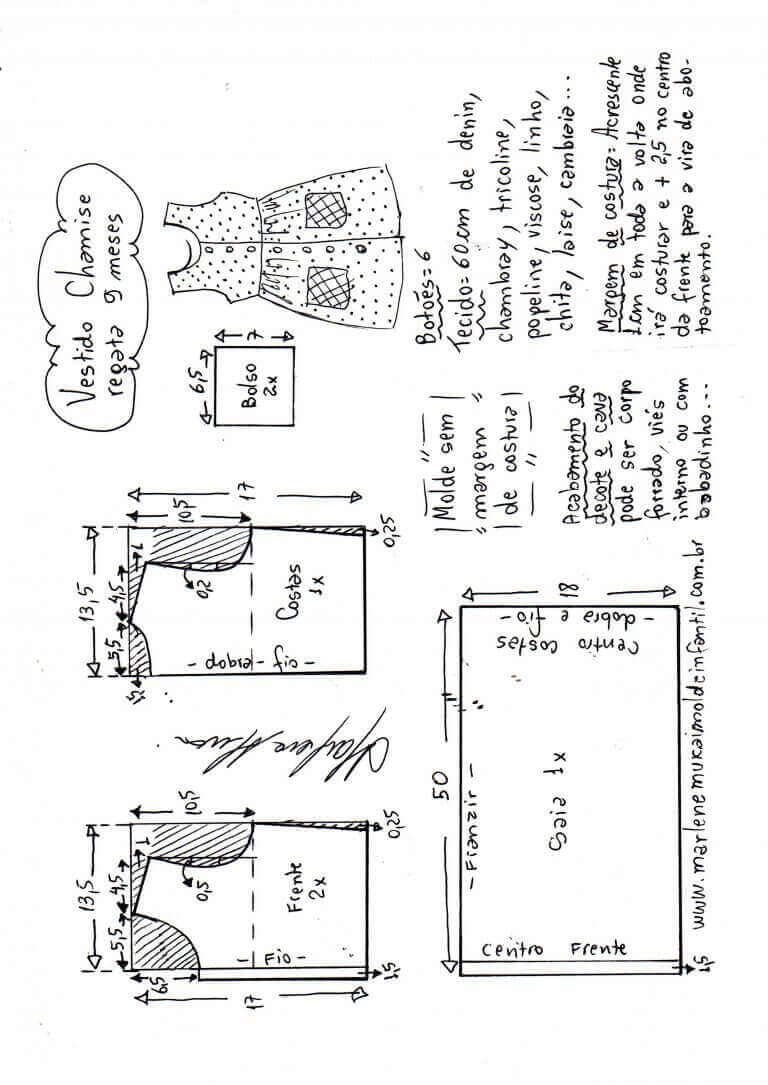 Vestido Chamise
regata 9 meses
6,5
7
Bolso
2x
Botões=6
Tecido=60cm de denin,
chambray, tricoline,
popeline, viscose, linho,
chita, laise, cambraia...
Margem de costura: Acrescente
1cm em toda a volta onde
irá costurar e + 2,5 no centro
da frente para a vira de abo-
toamento.
"Molde sem
"margem"
de costura"
Acabamento do
decote e cava
pode ser corpo
forrado, viés
interno ou com
babadinho...
13,5
5,5
4,5
1
1,5
10,5
17
0,2
Costas
1x
-fio-dobra-
0,25
13,5
5,5
4,5
1
6,5
10,5
17
0,5
Frente
2x
-Fio-
1,5
0,25
50
18
-Franzir-
Saia 1x
Centro costas
-dobra e fio-
Centro Frente
1,5
www.marlenemukaimoldeinfantil.com.br